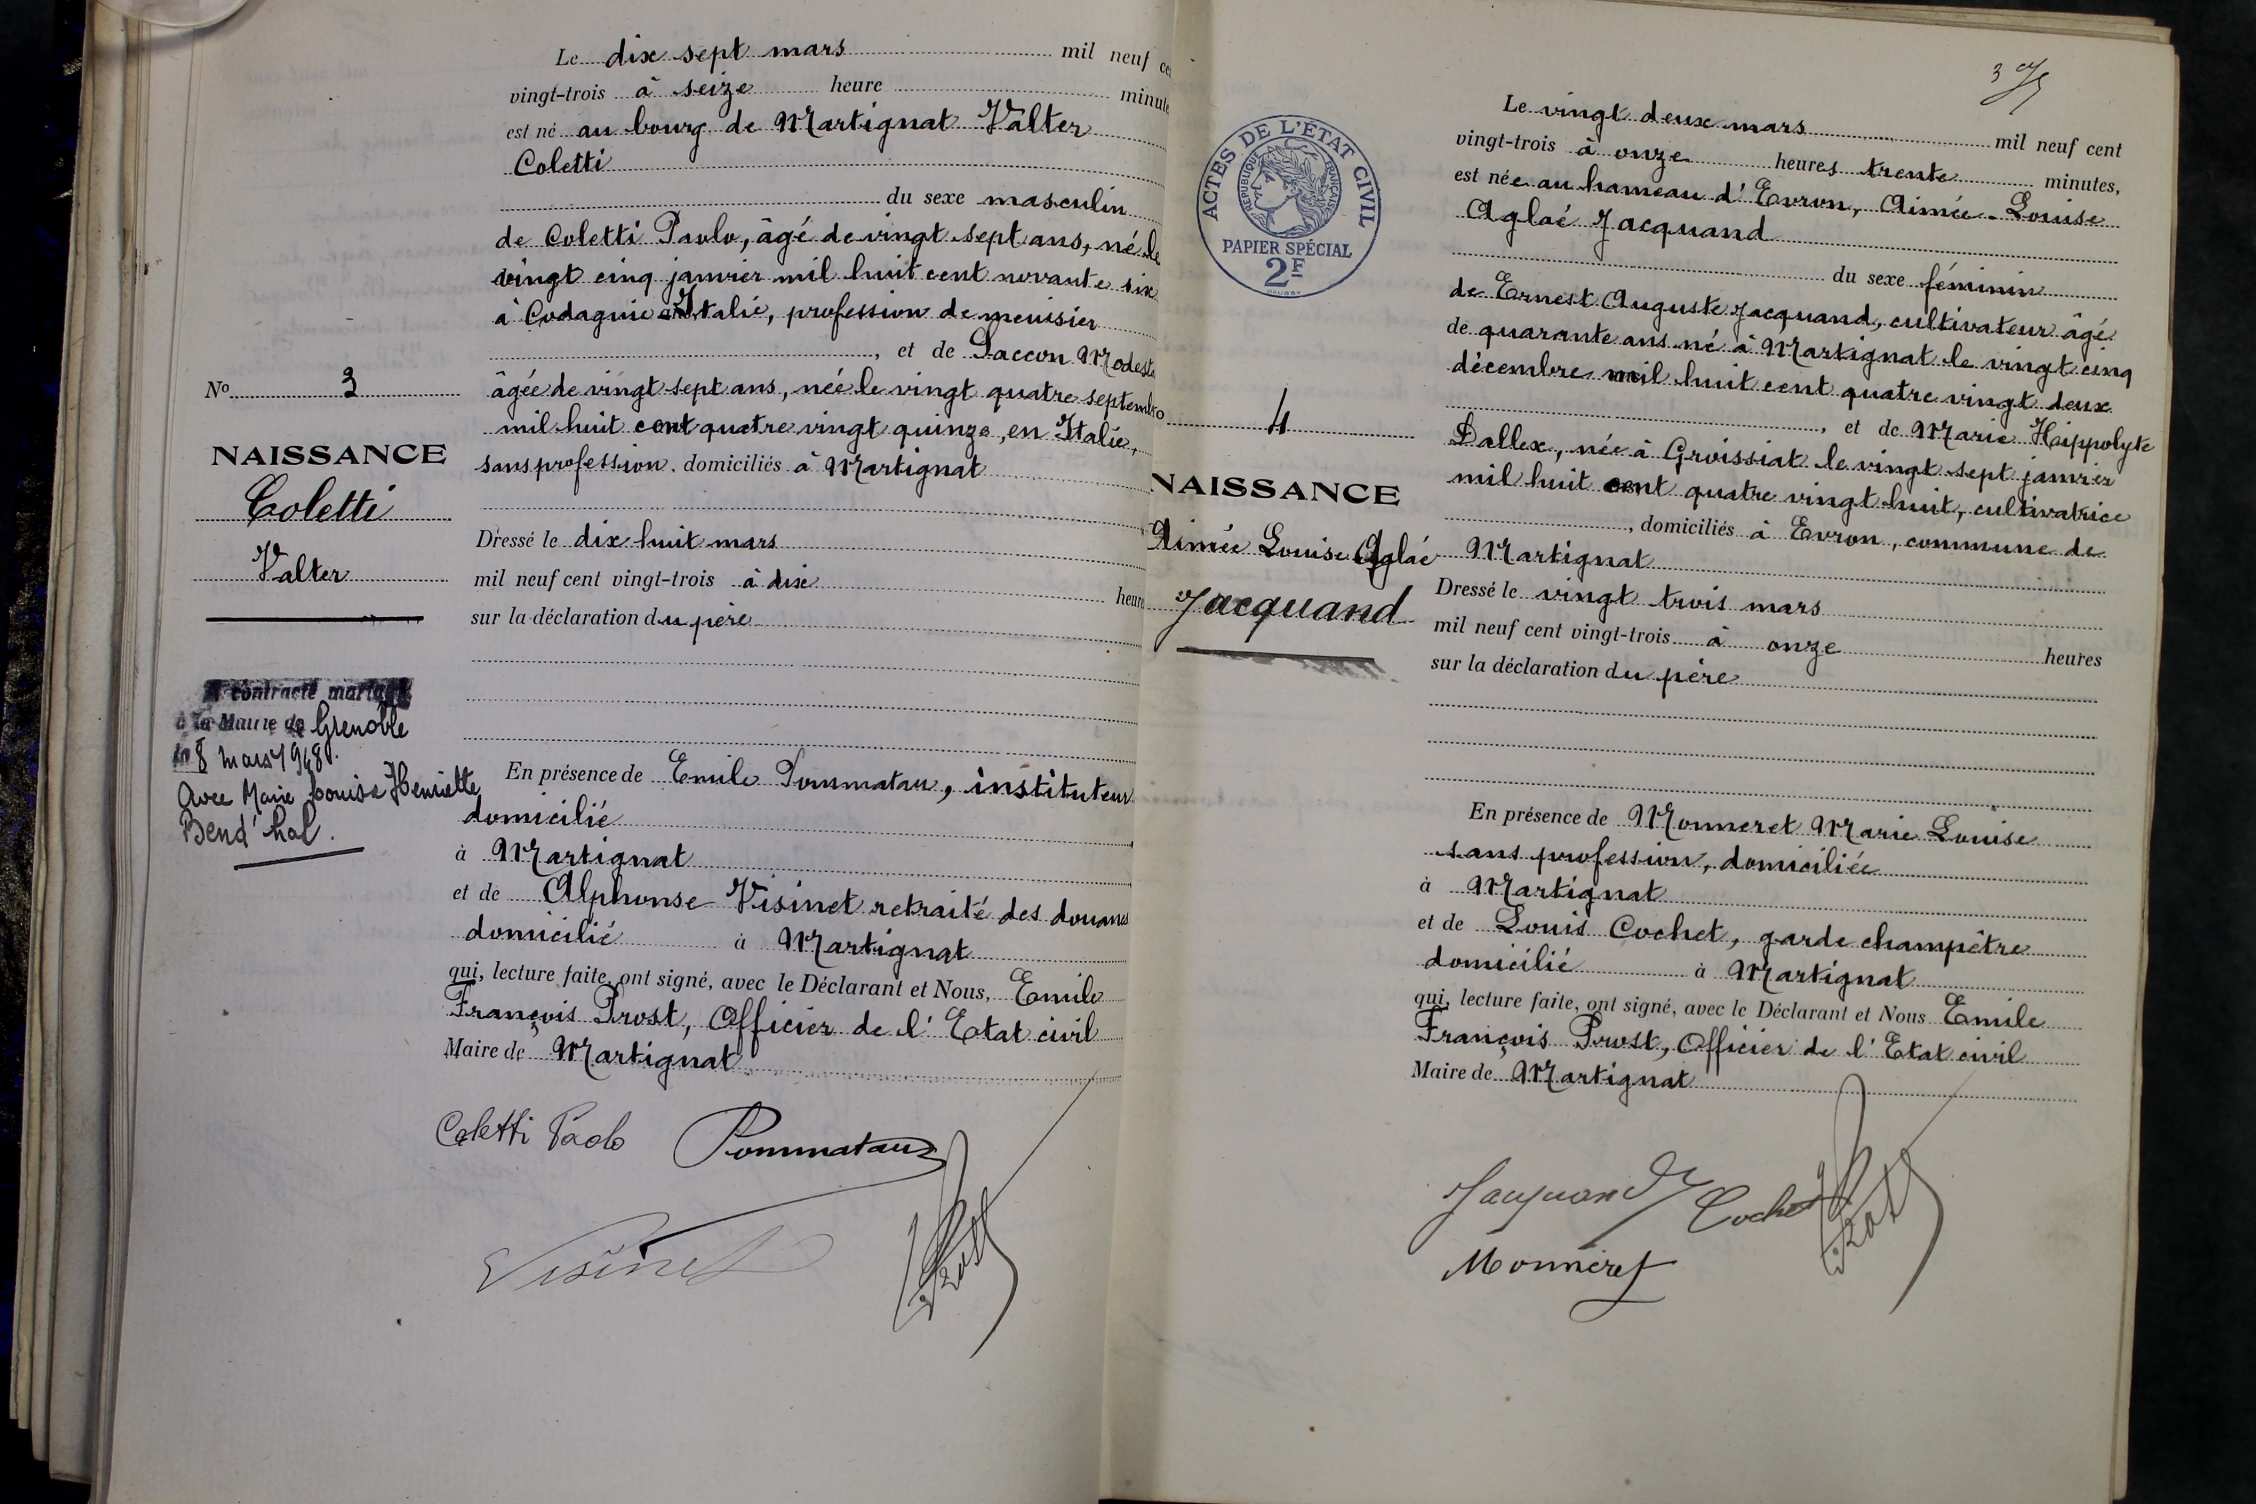 Le dix sept mars mil neuf ce
vingt-trois à seize heure minute
est né au bourg de Martignat Valter
Coletti
du sexe masculin
de Coletti Paolo, âgé de vingt sept ans, né le
vingt cinq janvier mil huit cent novante six
à Codagnie Italie, profession de menisier
, et de Daccon Modeste
âgée de vingt sept ans, née le vingt quatre septembre
mil huit cent quatre vingt quinze, en Italie,
sans profession, domiciliés à Martignat
Dressé le dix huit mars
mil neuf cent vingt-trois à dix heure
sur la déclaration du père
En présence de Emile Pommatau, instituteur
domicilié
à Martignat
et de Alphonse Visinet retraité des douanes
domicilié à Martignat
qui, lecture faite, ont signé, avec le Déclarant et Nous, Emile
François Prost, Officier de l'Etat civil
Maire de Martignat
Coletti Paolo Pommatau
Visinet Prost
No 3
NAISSANCE
Coletti
Valter
A contracté mariage
à la Mairie de Grenoble
le 8 mars 1948.
Avec Marie Louise Henriette
Bend'hal.
3
ACTES DE L'ÉTAT CIVIL
RÉPUBLIQUE FRANÇAISE
PAPIER SPÉCIAL
2F
Le vingt deux mars mil neuf cent
vingt-trois à onze heures trente minutes,
est née au hameau d'Evron, Aimée-Louise
Aglaé Jacquand
du sexe féminin
de Ernest Auguste Jacquand, cultivateur âgé
de quarante ans né à Martignat le vingt cinq
décembre mil huit cent quatre vingt deux
, et de Marie Hippolyte
Dallex, née à Groissiat le vingt sept janvier
mil huit cent quatre vingt huit, cultivatrice
, domiciliés à Evron, commune de
Martignat
Dressé le vingt trois mars
mil neuf cent vingt-trois à onze heures
sur la déclaration du père
En présence de Monneret Marie Louise
sans profession, domiciliée
à Martignat
et de Louis Cochet, garde champêtre
domicilié à Martignat
qui, lecture faite, ont signé, avec le Déclarant et Nous Emile
François Prost, Officier de l'Etat civil
Maire de Martignat
Jacquand Cochet Prost
Monneret
4
NAISSANCE
Aimée Louise Aglaé
Jacquand